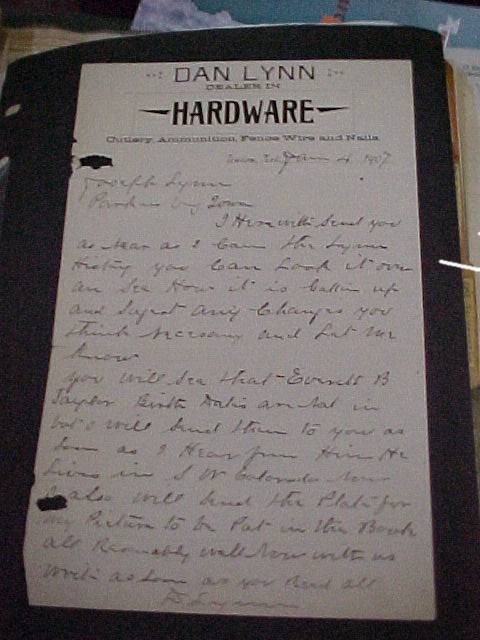 DAN LYNN
DEALER IN
HARDWARE
Cutlery, Ammunition, Fence Wire and Nails
Jan 4, 1907
Joseph Lynn
Iowa
I Herewith Send you
as Near as I Can the Lynn
History you Can Look it over
an See How it is Gotten up
and Sugest any Changes you
think Necesary and Let Me
Know
you will See that Everett B
Taylor Birth Dates are Not in
but I will Send them to you as
Soon as I Hear from Him He
Lives in S W Colorado Now
I also will Send the Plate for
my Picture to be Put in the Book
all Reasonably well Now with us
Write as Soon as you Read all
D Lynn